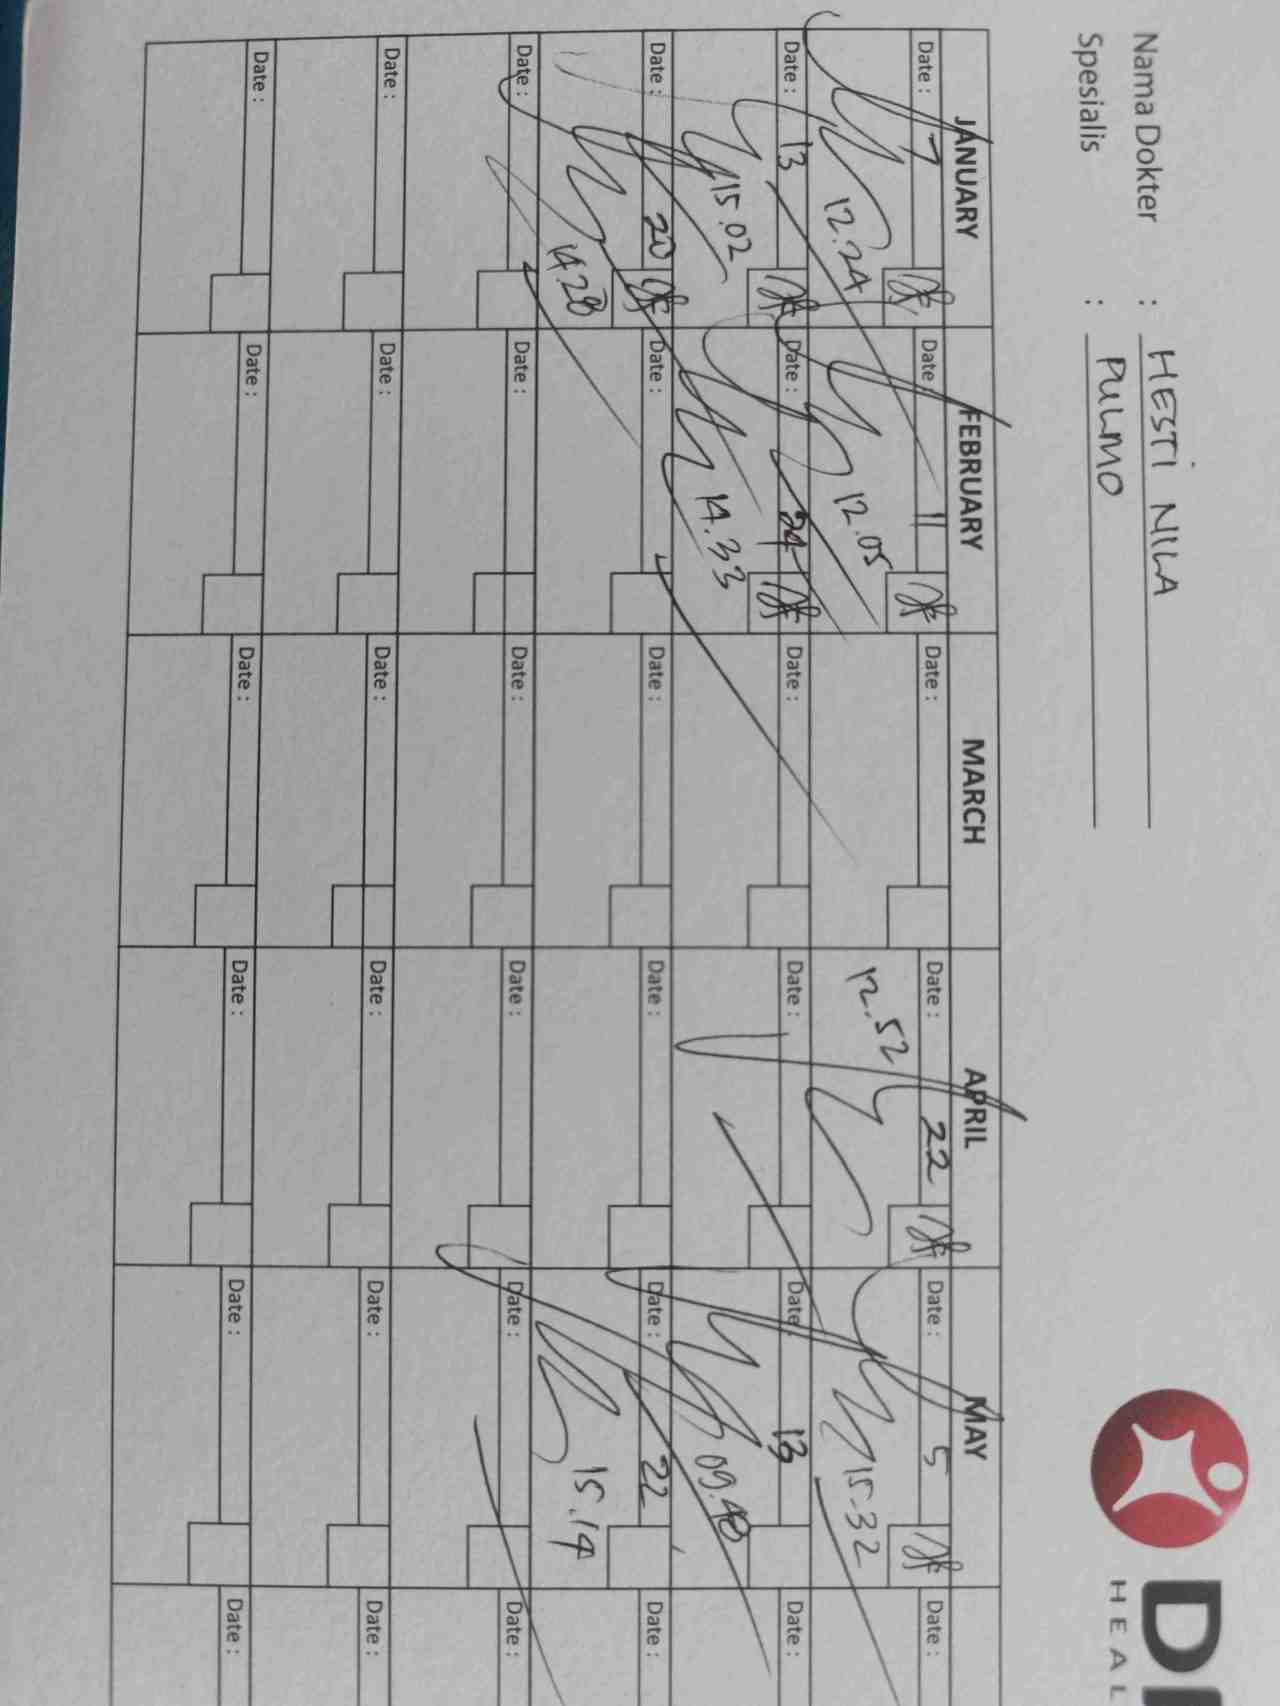 Nama Dokter : HESTI NILA
Spesialis : PULMO
HEAL
JANUARY FEBRUARY MARCH APRIL MAY
Date : 7 Date : 11 Date : Date : 22 Date : 5 Date :
12.24 12.05 12.52 15.32
Date : 13 Date : 24 Date : Date : Date : 13 Date :
15.02 14.33 09.40
Date : 20 Date : Date : Date : Date : 22 Date :
14.28 15.14
Date : Date : Date : Date : Date : Date :
Date : Date : Date : Date : Date : Date :
Date : Date : Date : Date : Date : Date :